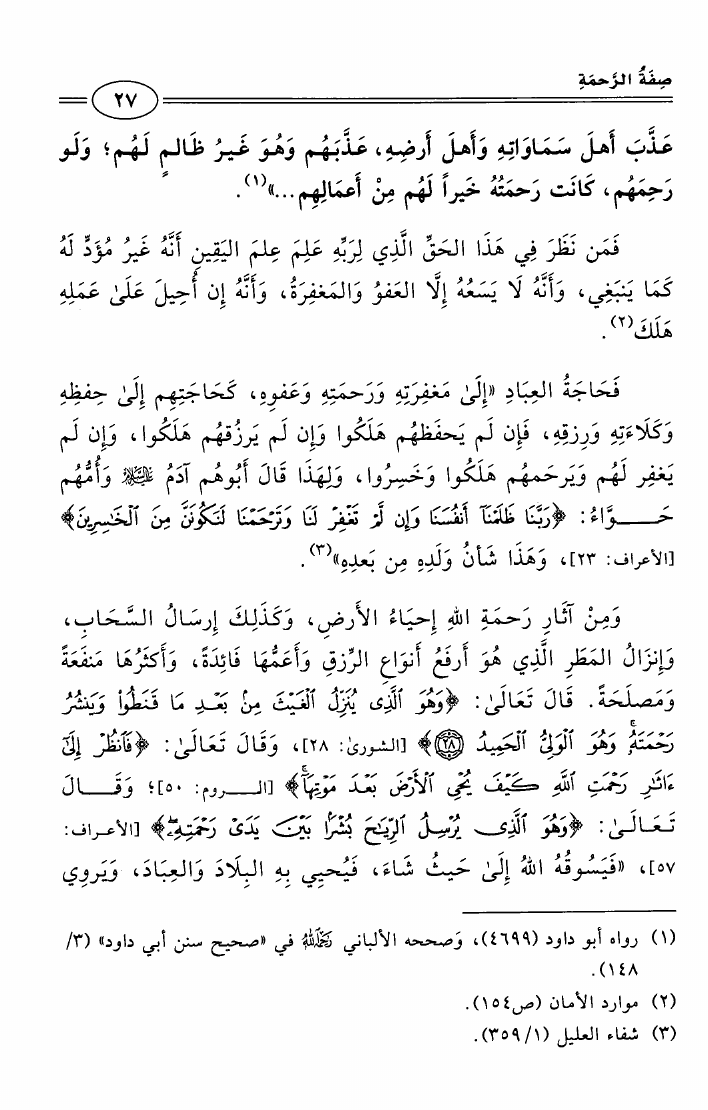 صِفَةُ الرَّحمَةِ
٢٧
عَذَّبَ أَهلَ سَمَاوَاتِهِ وَأَهلَ أَرضِهِ، عَذَّبَهُم وَهُوَ غَيرُ ظَالِمٍ لَهُم؛ وَلَو
رَحِمَهُم، كَانَت رَحمَتُهُ خَيراً لَهُم مِنْ أَعمَالِهِم...»(١).
فَمَن نَظَرَ فِي هَذَا الحَقِّ الَّذِي لِرَبِّهِ عَلِمَ عِلمَ اليَقِينِ أَنَّهُ غَيرُ مُؤَدٍّ لَهُ
كَمَا يَنبَغِي، وَأَنَّهُ لَا يَسَعُهُ إِلَّا العَفوُ وَالمَغفِرَةُ، وَأَنَّهُ إِن أُحِيلَ عَلَىٰ عَمَلِهِ
هَلَكَ(٢).
فَحَاجَةُ العِبَادِ «إِلَىٰ مَغفِرَتِهِ وَرَحمَتِهِ وَعَفوِهِ، كَحَاجَتِهِم إِلَىٰ حِفظِهِ
وَكَلَاءَتِهِ وَرِزقِهِ، فَإِن لَم يَحفَظهُم هَلَكُوا وَإِن لَم يَرزُقهُم هَلَكُوا، وَإِن لَم
يَغفِر لَهُم وَيَرحَمهُم هَلَكُوا وَخَسِرُوا، وَلِهَذَا قَالَ أَبُوهُم آدَمُ عليه السلام وَأُمُّهُم
حَـــوَّاءُ: ﴿رَبَّنَا ظَلَمْنَآ أَنفُسَنَا وَإِن لَّمْ تَغْفِرْ لَنَا وَتَرْحَمْنَا لَنَكُونَنَّ مِنَ ٱلْخَٰسِرِينَ﴾
[الأعراف: ٢٣]، وَهَذَا شَأنُ وَلَدِهِ مِن بَعدِهِ»(٣).
وَمِنْ آثَارِ رَحمَةِ اللهِ إِحيَاءُ الأَرضِ، وَكَذَلِكَ إِرسَالُ السَّحَابِ،
وَإِنزَالُ المَطَرِ الَّذِي هُوَ أَرفَعُ أَنوَاعِ الرِّزقِ وَأَعَمُّهَا فَائِدَةً، وَأَكثَرُهَا مَنفَعَةً
وَمَصلَحَةً. قَالَ تَعَالَىٰ: ﴿وَهُوَ ٱلَّذِى يُنَزِّلُ ٱلْغَيْثَ مِنۢ بَعْدِ مَا قَنَطُوا۟ وَيَنشُرُ
رَحْمَتَهُۥۚ وَهُوَ ٱلْوَلِىُّ ٱلْحَمِيدُ ٢٨﴾ [الشورىٰ: ٢٨]، وَقَالَ تَعَالَىٰ: ﴿فَٱنظُرْ إِلَىٰٓ
ءَاثَٰرِ رَحْمَتِ ٱللَّهِ كَيْفَ يُحْىِ ٱلْأَرْضَ بَعْدَ مَوْتِهَآۚ﴾ [الـروم: ٥٠]؛ وَقَـالَ
تَعَـالَـىٰ: ﴿وَهُوَ ٱلَّذِى يُرْسِلُ ٱلرِّيَٰحَ بُشْرًۢا بَيْنَ يَدَىْ رَحْمَتِهِۦ﴾ [الأعراف:
٥٧]، «فَيَسُوقُهُ اللهُ إِلَىٰ حَيثُ شَاءَ، فَيُحيِي بِهِ البِلَادَ وَالعِبَادَ، وَيَروِي
(١) رواه أبو داود (٤٦٩٩)، وَصححه الألباني رحمه الله في «صحيح سنن أبي داود» (٣/
١٤٨).
(٢) موارد الأمان (ص١٥٤).
(٣) شفاء العليل (١/ ٣٥٩).